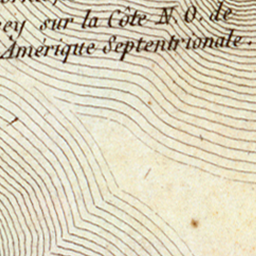 ey sur la Côte N.O. de
Amérique Septentrionale.